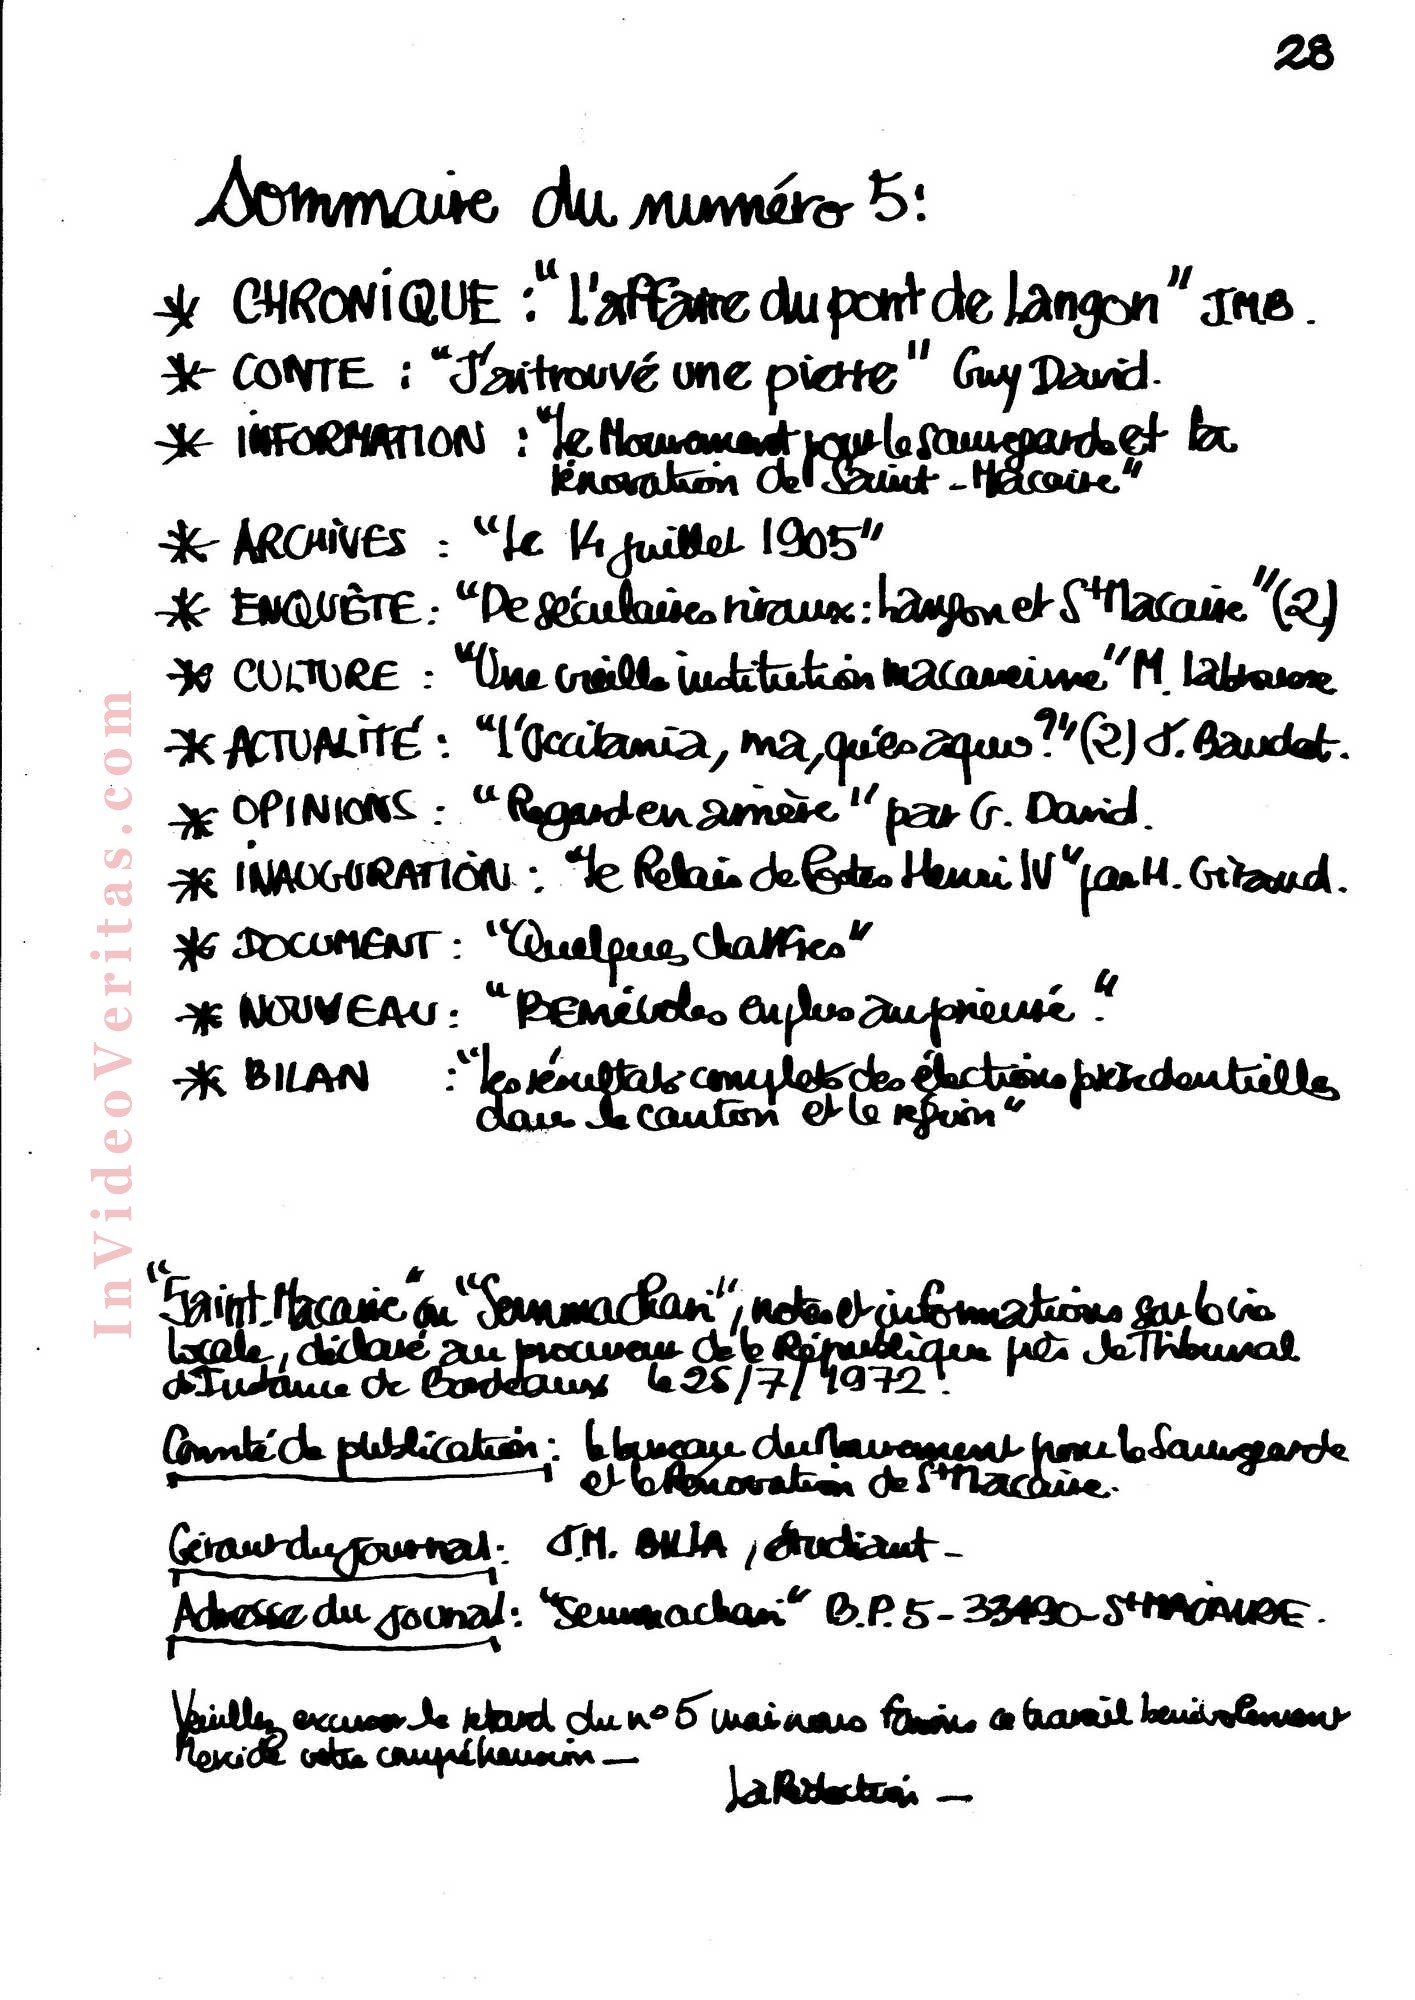 28
Sommaire du numéro 5:
* CHRONIQUE : "L'affaire du pont de Langon" JMB.
* CONTE : "J'ai trouvé une pierre" Guy David.
* INFORMATION : "Le Mouvement pour la Sauvegarde et la
rénovation de Saint-Macaire"
* ARCHIVES : "Le 14 juillet 1905"
* ENQUÊTE : "De séculaires rivaux : Langon et St Macaire" (2)
* CULTURE : "Une vieille institution macarienne" M. Labrousse
* ACTUALITÉ : "l'Occitania, ma, qu'es aquo?" (2) J. Baudet.
* OPINIONS : "Regard en arrière" par G. David.
* INAUGURATION : "le Relais de Postes Henri IV" par H. Giraud.
* DOCUMENT : "Quelques chiffres"
* NOUVEAU : "BENévoles en plus au prieuré."
* BILAN : "les résultats complets des élections présidentielles
dans le canton et la région"
"Saint-Macaire" ou "Senmachari", notes et informations sur la vie
locale, déclaré au procureur de la République près le Tribunal
d'Instance de Bordeaux le 25/7/1972.
Comité de publication : le bureau du Mouvement pour la Sauvegarde
et la Rénovation de St Macaire.
Gérant du journal : J.M. BILLA, étudiant -
Adresse du journal : "Senmachari" B.P. 5 - 33490 - St MACAIRE.
Veuillez excuser le retard du n° 5 mais nous faisons ce travail bénévolement
Merci de votre compréhension -
La Rédaction -
InVideoVeritas.com